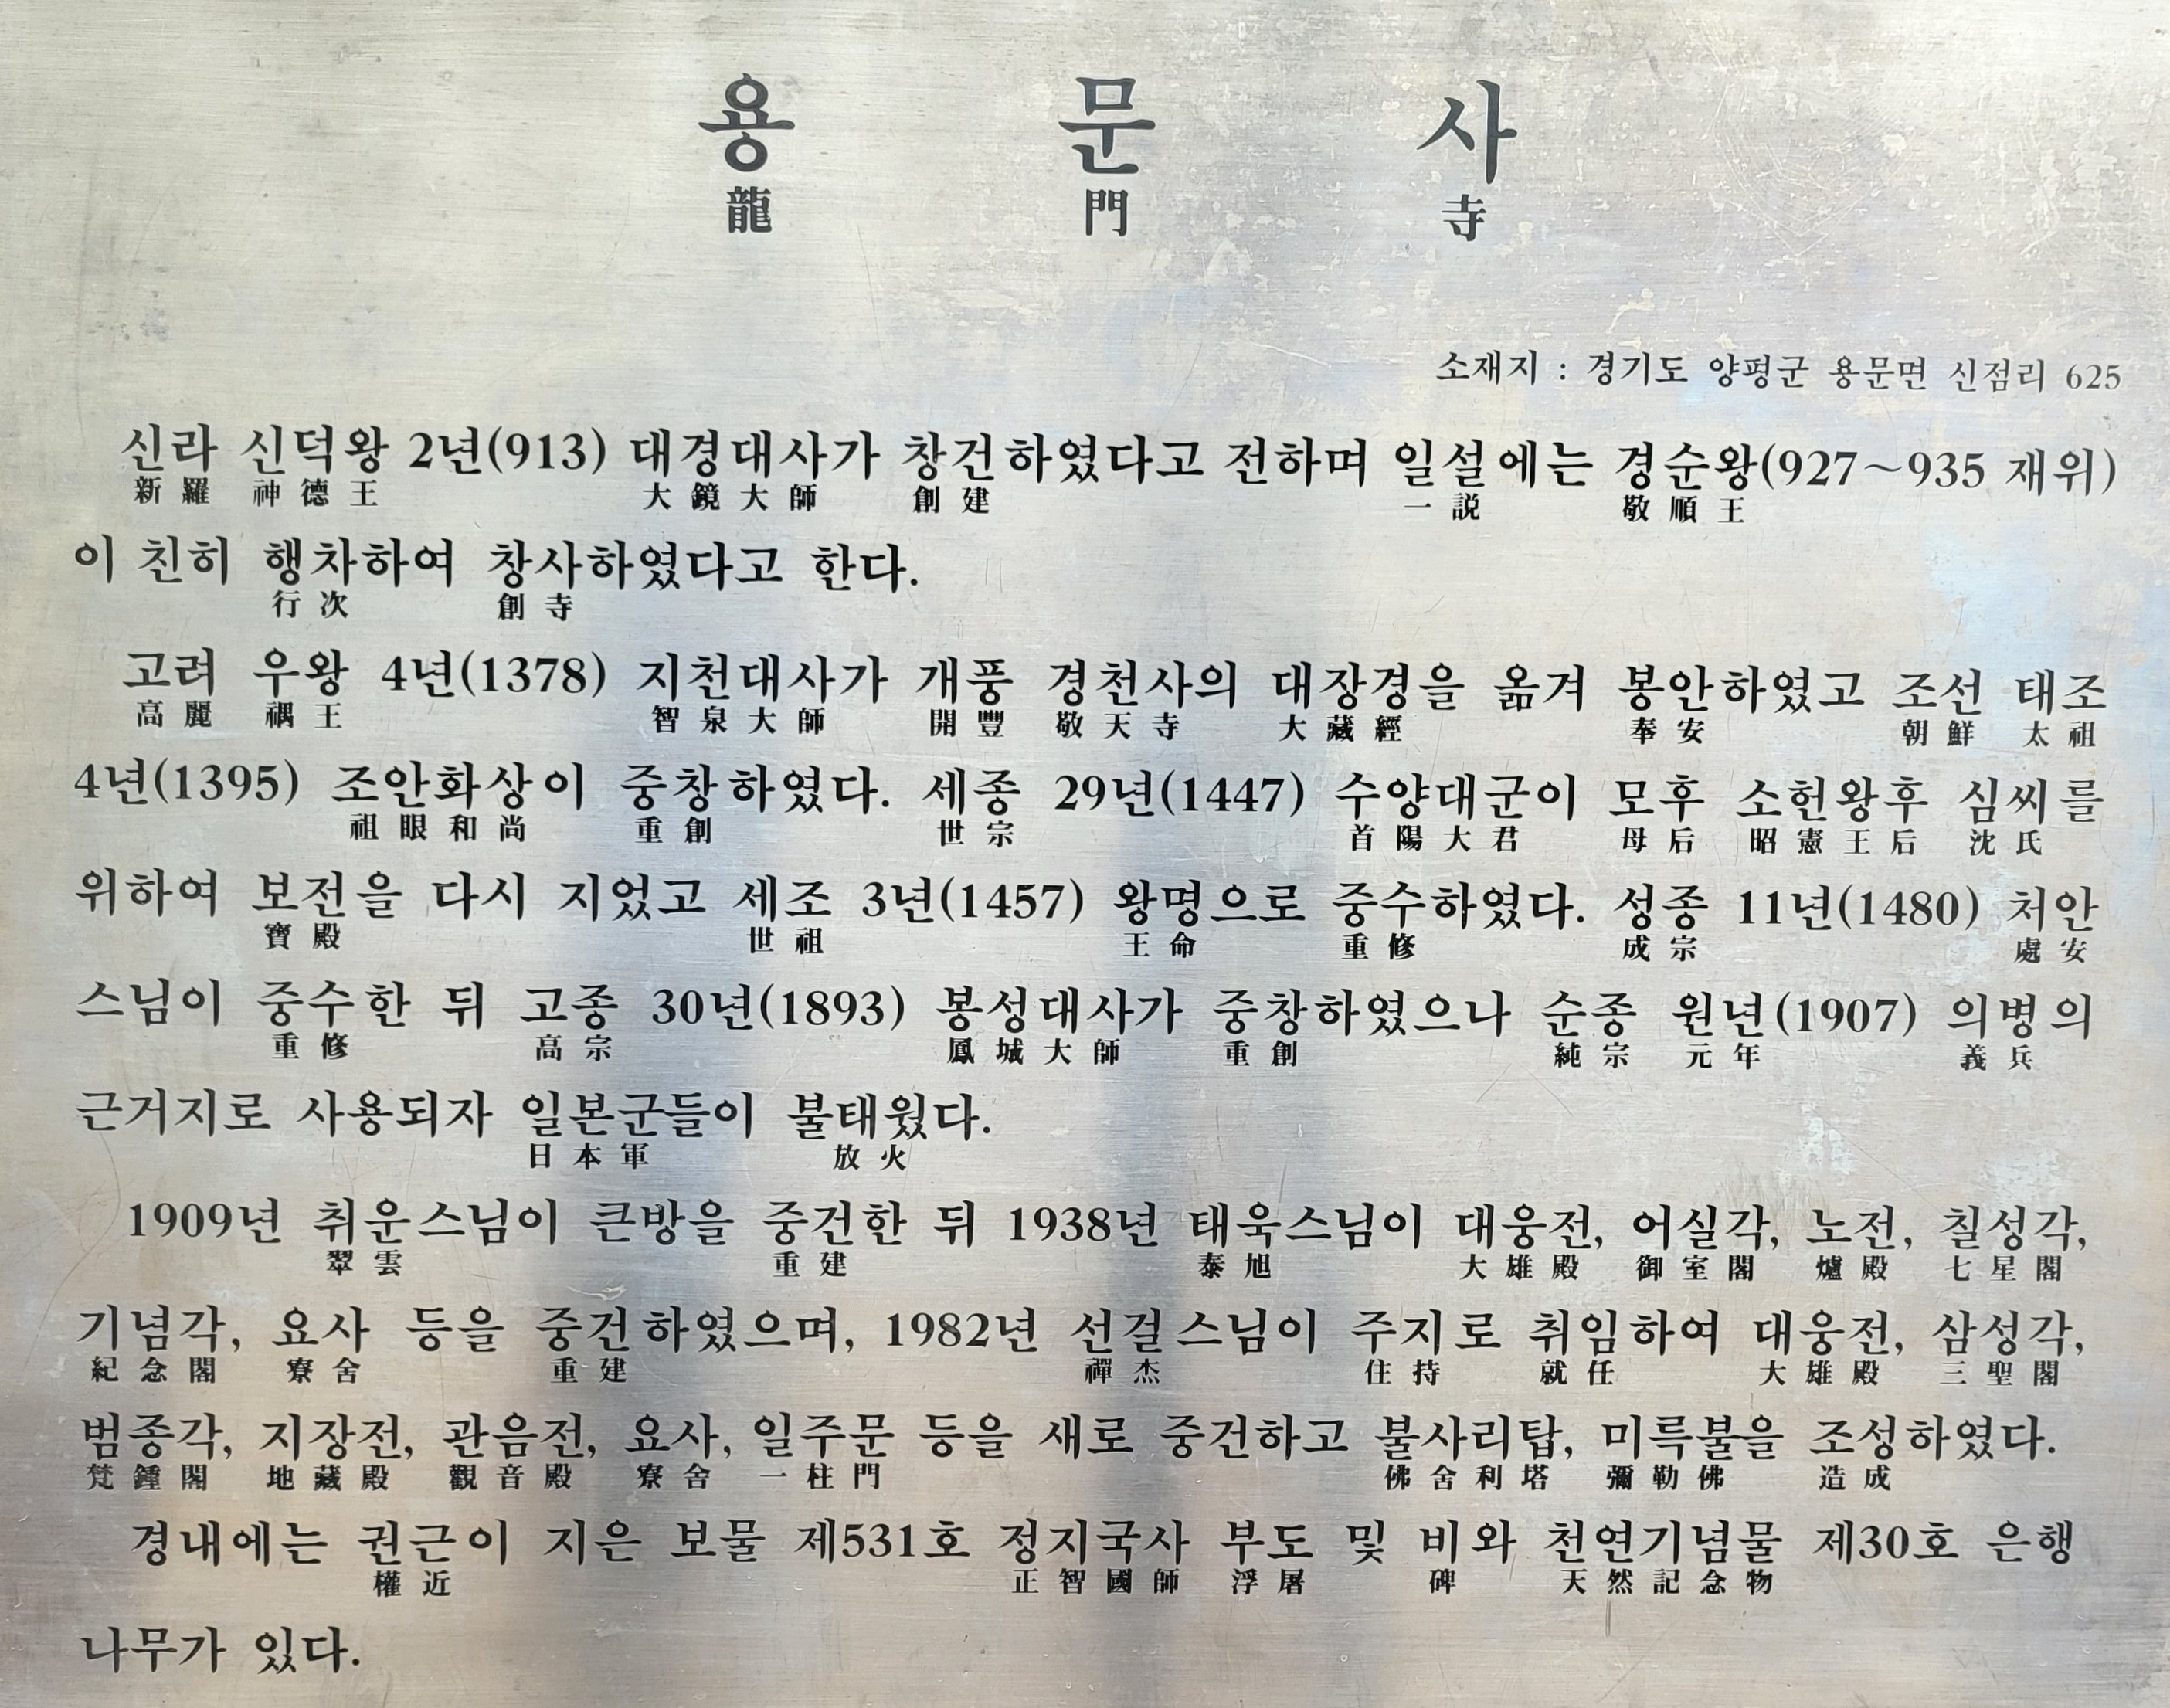 용 문 사
龍 門 寺
소재지 : 경기도 양평군 용문면 신점리 625
신라 신덕왕 2년(913) 대경대사가 창건하였다고 전하며 일설에는 경순왕(927~935 재위)
新羅 神德王 大鏡大師 創建 一説 敬順王
이 친히 행차하여 창사하였다고 한다.
行次 創寺
고려 우왕 4년(1378) 지천대사가 개풍 경천사의 대장경을 옮겨 봉안하였고 조선 태조
高麗 禑王 智泉大師 開豐 敬天寺 大藏經 奉安 朝鮮 太祖
4년(1395) 조안화상이 중창하였다. 세종 29년(1447) 수양대군이 모후 소헌왕후 심씨를
祖眼和尚 重創 世宗 首陽大君 母后 昭憲王后 沈氏
위하여 보전을 다시 지었고 세조 3년(1457) 왕명으로 중수하였다. 성종 11년(1480) 처안
寶殿 世祖 王命 重修 成宗 處安
스님이 중수한 뒤 고종 30년(1893) 봉성대사가 중창하였으나 순종 원년(1907) 의병의
重修 高宗 鳳城大師 重創 純宗 元年 義兵
근거지로 사용되자 일본군들이 불태웠다.
日本軍 放火
1909년 취운스님이 큰방을 중건한 뒤 1938년 태욱스님이 대웅전, 어실각, 노전, 칠성각,
翠雲 重建 泰旭 大雄殿 御室閣 爐殿 七星閣
기념각, 요사 등을 중건하였으며, 1982년 선걸스님이 주지로 취임하여 대웅전, 삼성각,
紀念閣 寮舍 重建 禪杰 住持 就任 大雄殿 三聖閣
범종각, 지장전, 관음전, 요사, 일주문 등을 새로 중건하고 불사리탑, 미륵불을 조성하였다.
梵鍾閣 地藏殿 觀音殿 寮舍 一柱門 佛舍利塔 彌勒佛 造成
경내에는 권근이 지은 보물 제531호 정지국사 부도 및 비와 천연기념물 제30호 은행
權近 正智國師 浮屠 碑 天然記念物
나무가 있다.